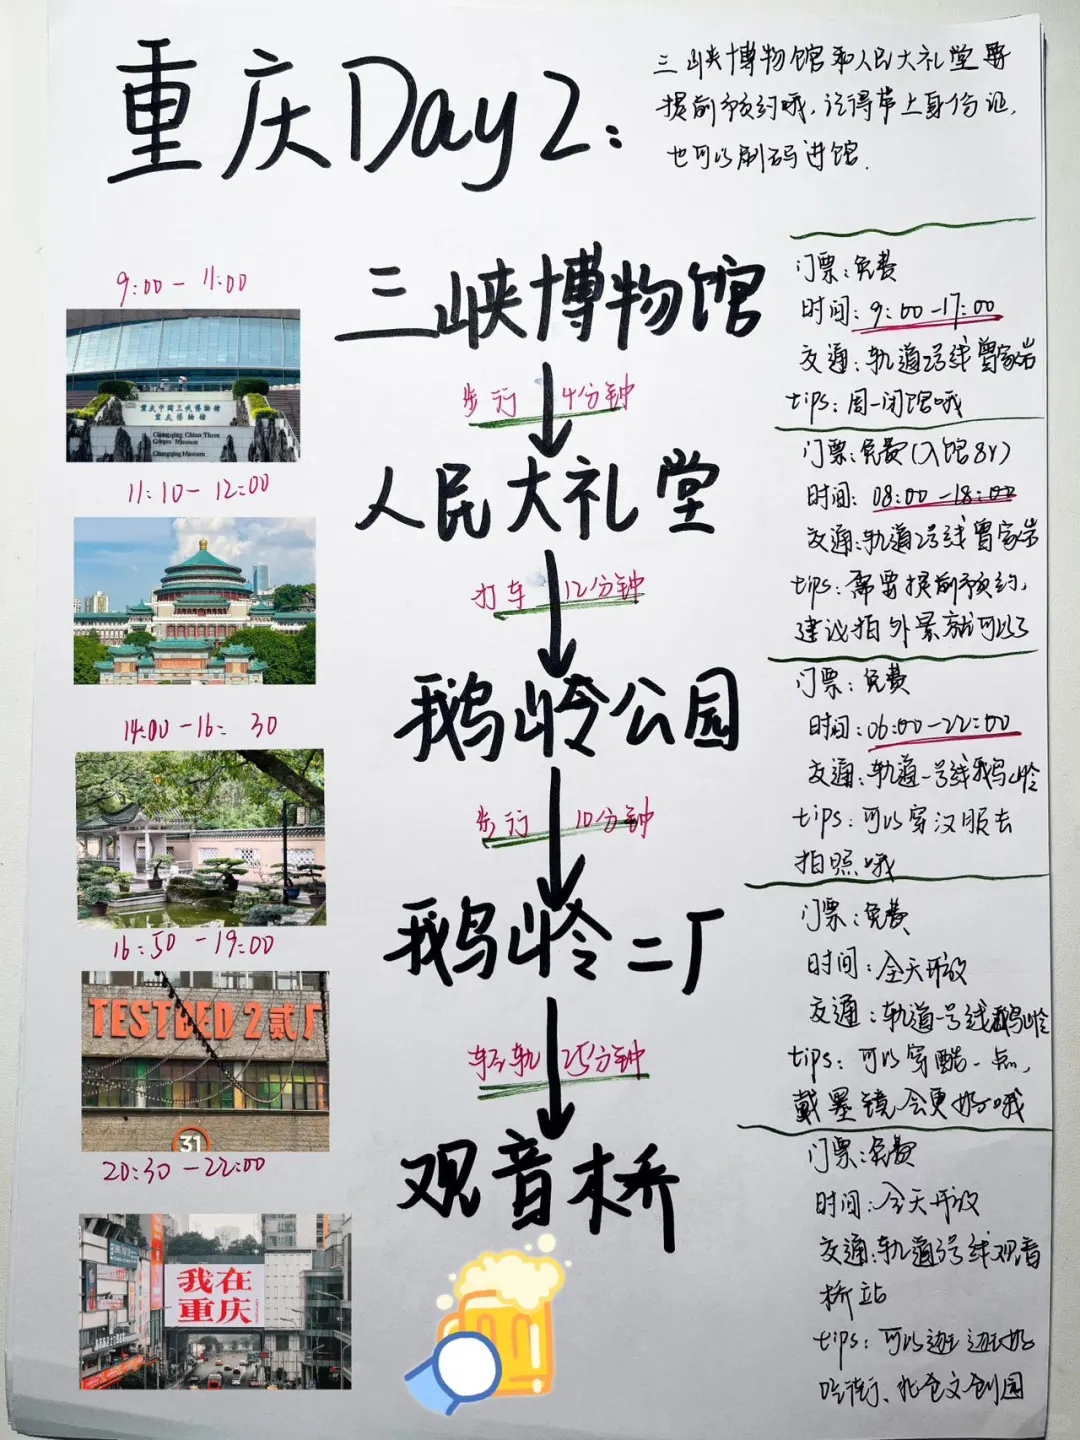 重庆Day2:
三峡博物馆和人民大礼堂要
提前预约哦,记得带上身份证,
也可以刷码进馆.
9:00-11:00
重庆中国三峡博物馆
重庆博物馆
Chongqing China Three
Gorges Museum
Chongqing Museum
三峡博物馆
门票:免费
时间:9:00-17:00
交通:轨道2号线曾家岩
tips:周一闭馆哦
步行 4分钟
11:10-12:00
人民大礼堂
门票:免费(入馆8Y)
时间:08:00-18:00
交通:轨道2号线曾家岩
tips:需要提前预约,
建议拍外景就可以了
打车 12分钟
14:00-16:30
鹅岭公园
门票:免费
时间:06:00-22:00
交通:轨道一号线鹅岭
tips:可以穿汉服去
拍照哦
步行 10分钟
16:50-19:00
TESTBED 2 贰厂
31
鹅岭二厂
门票:免费
时间:全天开放
交通:轨道一号线鹅岭
tips:可以穿酷一点,
戴墨镜会更好哦
轻轨 25分钟
20:30-22:00
我在
重庆
观音桥
门票:免费
时间:全天开放
交通:轨道3号线观音
桥站
tips:可以逛逛好
吃街、北仓文创园